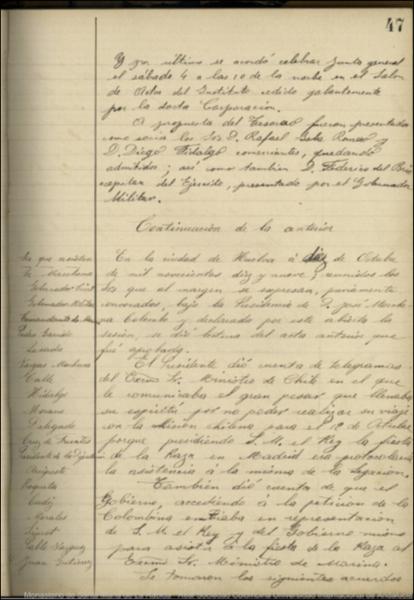 47
Y por último se acordó celebrar Junta general
el sábado 4 a las 10 de la noche en el Salón
de Actos del Instituto cedido galantemente
por la docta Corporación.
A propuesta del Tesorero fueron presentados
como socios los Srs D. Rafael
D. Diego Fidalgo comerciantes, quedando
admitidos; así como tambien D. Federico del
capitan del Ejército, presentado por el Gobernador
Militar.
Continuación de la anterior
Srs que asisten
Marchena
Gobernador Civil
Gobernador Militar
Comandante de
Pedro Garrido
Vargas Machuca
Calle
Hidalgo
Moreno
Delgado
Cruz de Fuentes
Presidente de la Diputación
Cádiz
Morales
Pablo Vázquez
Juan Gutierrez
En la ciudad de Huelva á diez de Octubre
de mil novecientos diez y nueve, reunidos los
Srs que al margen se expresan, previamente
convocados, bajo la Presidencia de D. José Marche-
na Colombo y declarada por este abierta la
sesión, se dió lectura del acta anterior que
fué aprobada.
El Presidente dió cuenta de telegramas
del Excmo Sr. Ministro de Chile en el que
le comunicaba el gran pesar que llenaba
su espíritu por no poder realizar su viaje
con la Misión chilena para el 12 de Octubre
porque presidiendo S. M. el Rey la fiesta
de la Raza en Madrid era protocolaria
la asistencia á la misma de la Legación.
Tambien dió cuenta de que el
Gobierno, accediendo á la petición de la
Colombina enviaba en representación
de S. M. el Rey y del Gobierno mismo
para asistir á la fiesta de la Raza al
Excmo Sr. Ministro de Marina.
Se tomaron los siguientes acuerdos